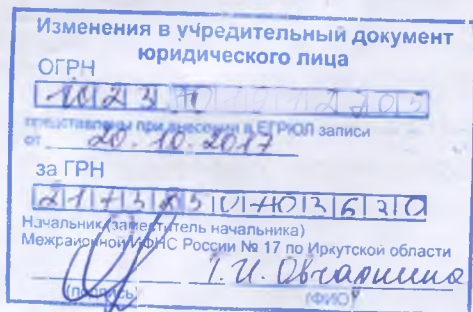 Изменения в учредительный документ
юридического лица
ОГРН
представлены при внесении в ЕГРЮЛ записи
от 20.10.2017
за ГРН
Начальник (заместитель начальника)
Межрайонной ИФНС России № 17 по Иркутской области
(подпись) (ФИО)